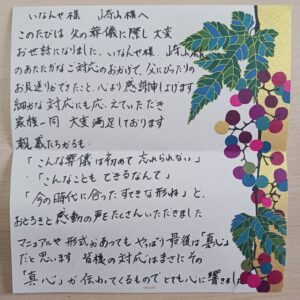 いなんせ様 崎山様へ
このたびは父の葬儀に際し大変
お世話になりました。いなんせ様、崎山様
のあたたかなご対応のおかげで、父にぴったりの
お見送りができたこと、心より感謝申し上げます
細かな対応にも応えていただき
家族一同 大変満足しております
親戚たちからも
「こんな葬儀は初めて 忘れられない」
「こんなこともできるなんて」
「今の時代に合ったすてきな形ね」と、
おどろきと感動の声をたくさんいただきました
マニュアルや形式があってもやっぱり最後は「真心」
だと思います。皆様の対応はまさにその
「真心」が伝わってくるものでとても心に響きました